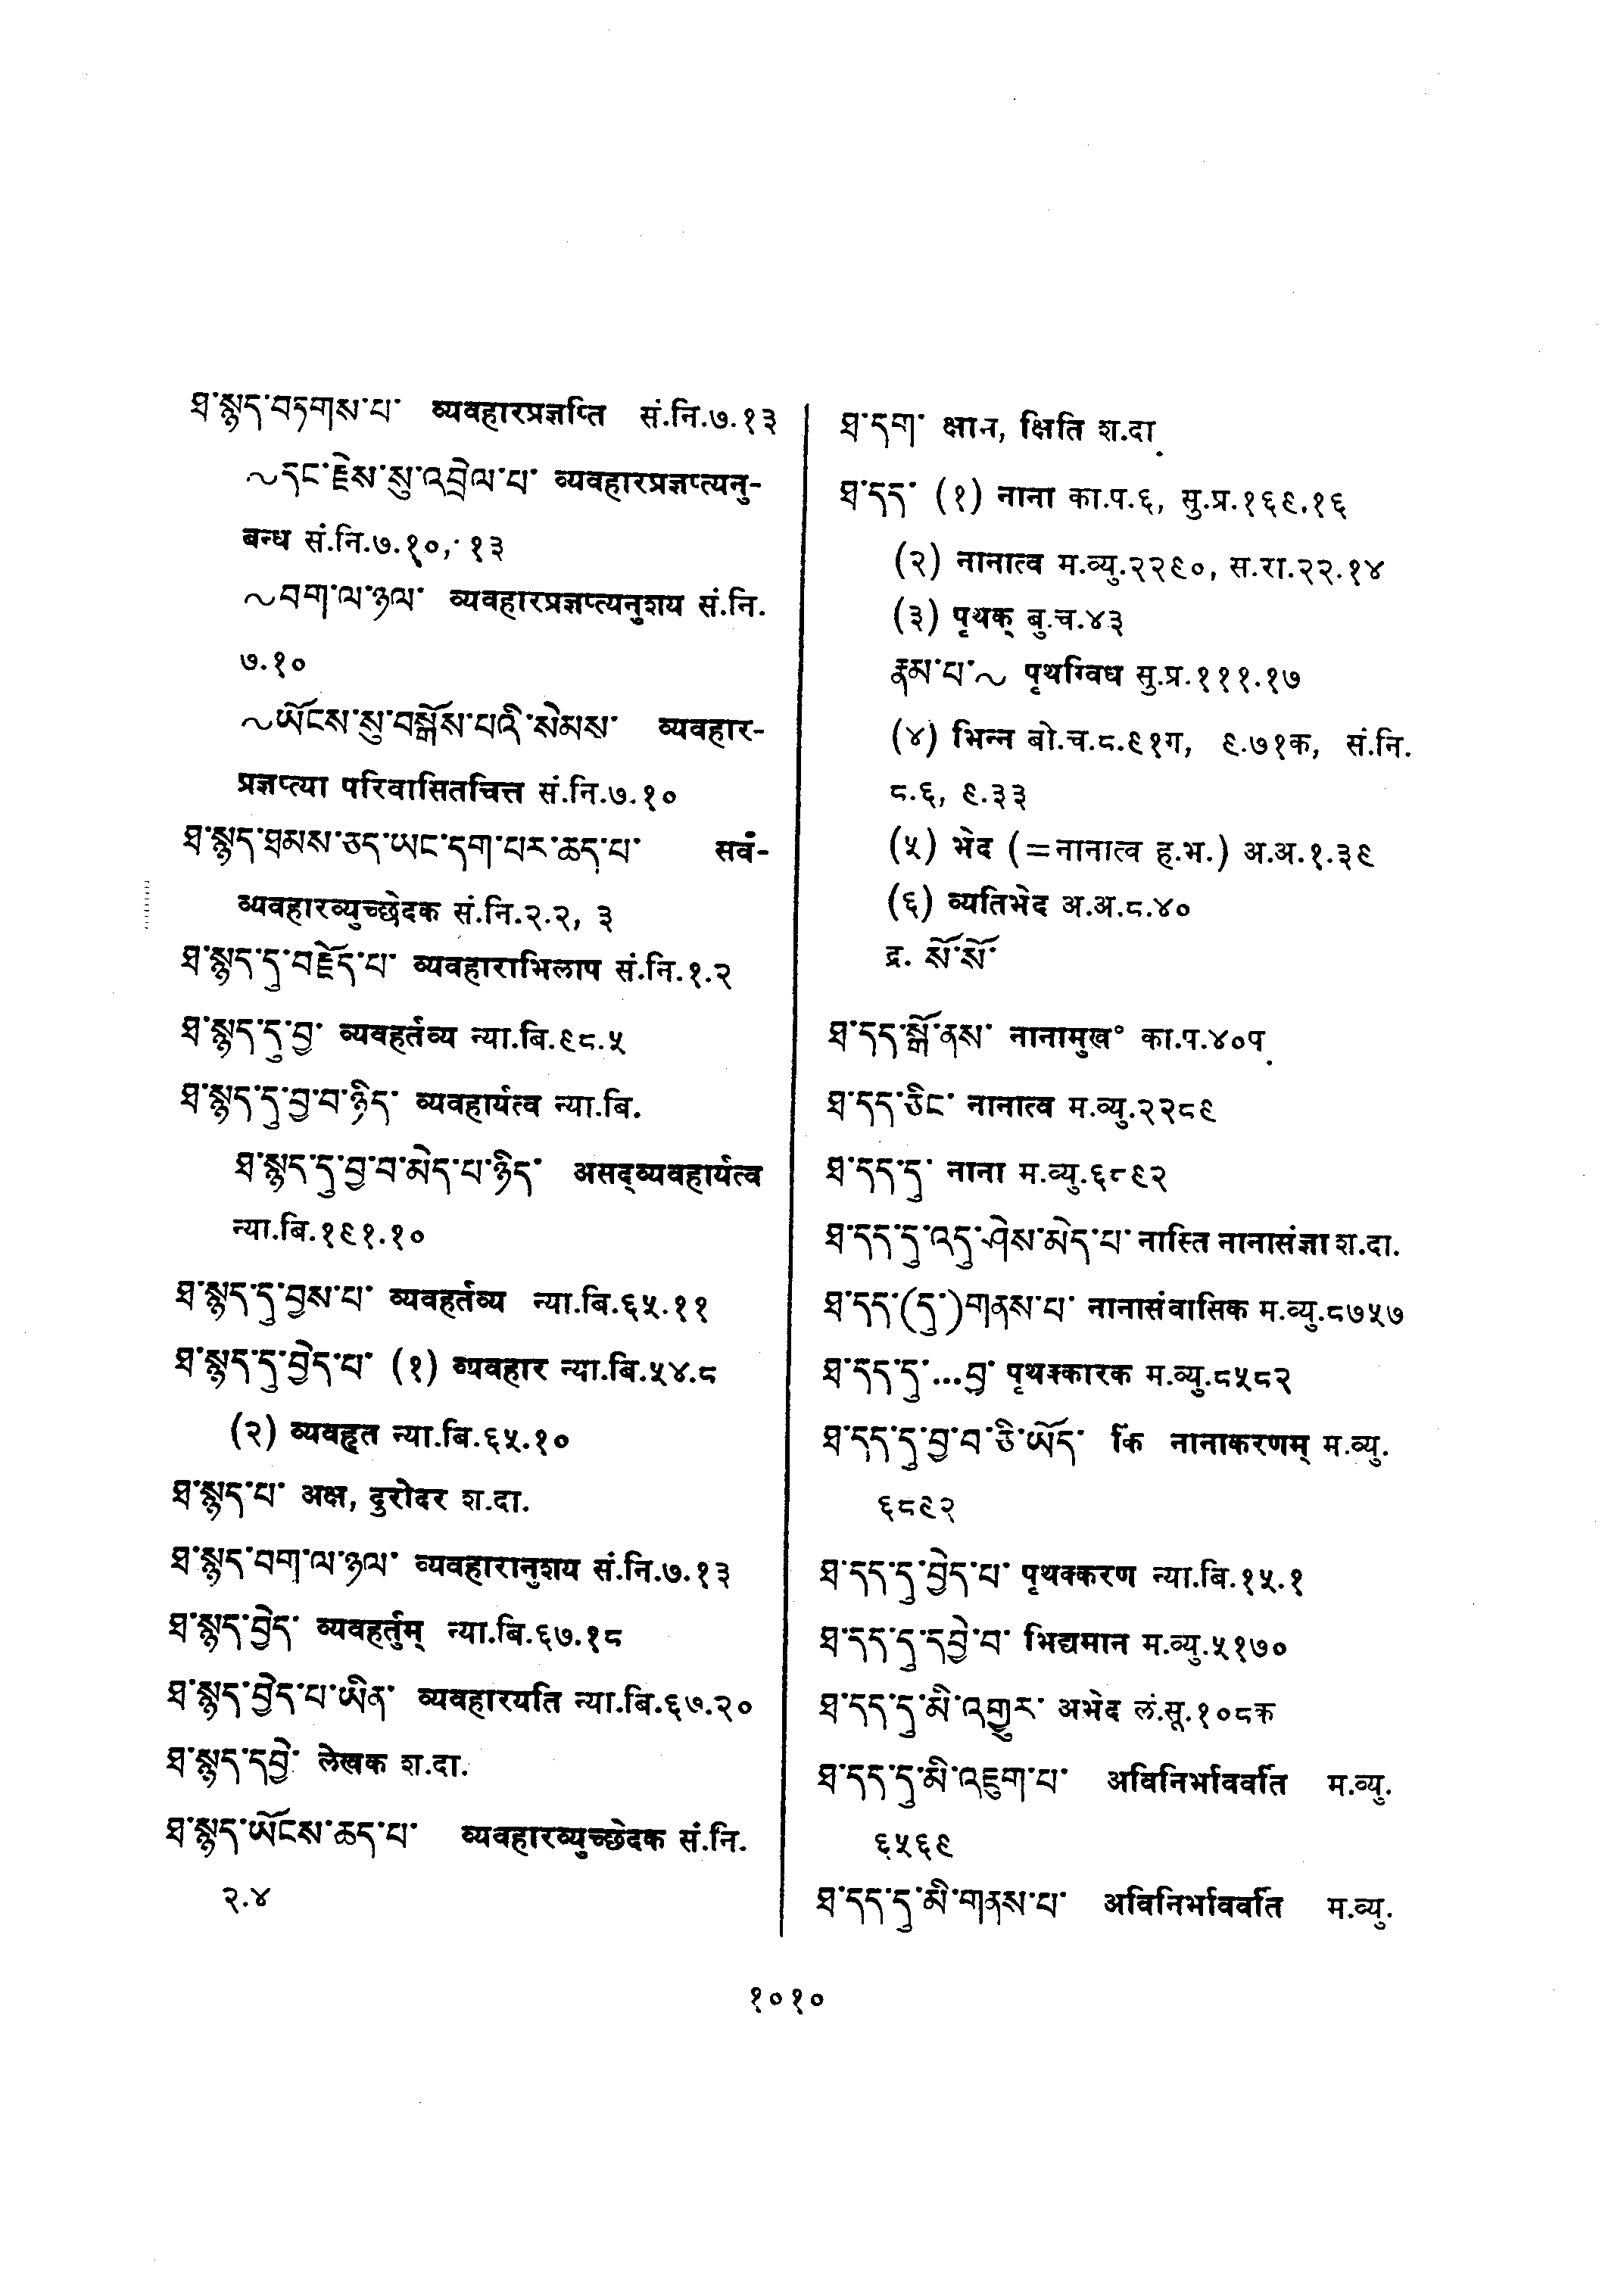 ཐ་སྙད་བཏགས་པ་ व्यवहारप्रज्ञप्ति सं.नि.७.१३
~དང་རྗེས་སུ་འབྲེལ་པ་ व्यवहारप्रज्ञप्त्यनु-
बन्ध सं.नि.७.१०, १३
~བག་ལ་ཉལ་ व्यवहारप्रज्ञप्त्यनुशय सं.नि.
७.१०
~ཡོངས་སུ་བསྒོས་པའི་སེམས་ व्यवहार-
प्रज्ञप्त्या परिवासितचित्त सं.नि.७.१०
ཐ་སྙད་ཐམས་ཅད་ཡང་དག་པར་ཆད་པ་ सर्व-
व्यवहारव्युच्छेदक सं.नि.२.२, ३
ཐ་སྙད་དུ་བརྗོད་པ་ व्यवहाराभिलाप सं.नि.१.२
ཐ་སྙད་དུ་བྱ་ व्यवहर्तव्य न्या.बि.९८.५
ཐ་སྙད་དུ་བྱ་བ་ཉིད་ व्यवहार्यत्व न्या.बि.
ཐ་སྙད་དུ་བྱ་བ་མེད་པ་ཉིད་ असद्व्यवहार्यत्व
न्या.बि.१९१.१०
ཐ་སྙད་དུ་བྱས་པ་ व्यवहर्तव्य न्या.बि.६५.११
ཐ་སྙད་དུ་བྱེད་པ་ (१) व्यवहार न्या.बि.५४.८
(२) व्यवहृत न्या.बि.६५.१०
ཐ་སྙད་པ་ अक्ष, दुरोदर श.दा.
ཐ་སྙད་བག་ལ་ཉལ་ व्यवहारानुशय सं.नि.७.१३
ཐ་སྙད་བྱེད་ व्यवहर्तुम् न्या.बि.६७.१८
ཐ་སྙད་བྱེད་པ་ཡིན་ व्यवहारयति न्या.बि.६७.२०
ཐ་སྙད་དབྱེ་ लेखक श.दा.
ཐ་སྙད་ཡོངས་ཆད་པ་ व्यवहारव्युच्छेदक सं.नि.
२.४
ཐ་དག་ क्षिति श.दा.
ཐ་དད་ (१) नाना का.प.६, सु.प्र.१६९.१६
(२) नानात्व म.व्यु.२२९०, स.रा.२२.१४
(३) पृथक् बु.च.४३
རྣམ་པ་~ पृथग्विध सु.प्र.१११.१७
(४) भिन्न बो.च.८.९१ग, ९.७१क, सं.नि.
८.६, ९.३३
(५) भेद (=नानात्व ह.भ.) अ.अ.१.३९
(६) व्यतिभेद अ.अ.८.४०
द्र. སོ་སོ་
ཐ་དད་སྒོ་ནས་ नानामुख° का.प.४०प.
ཐ་དད་ཅིང་ नानात्व म.व्यु.२२८९
ཐ་དད་དུ་ नाना म.व्यु.६८९२
ཐ་དད་དུ་འདུ་ཤེས་མེད་པ་ नास्ति नानासंज्ञा श.दा.
ཐ་དད་(དུ་)གནས་པ་ नानासंवासिक म.व्यु.८७५७
ཐ་དད་དུ་...བྱ་ पृथक्कारक म.व्यु.८५८२
ཐ་དད་དུ་བྱ་བ་ཅི་ཡོད་ किं नानाकरणम् म.व्यु.
६८९२
ཐ་དད་དུ་བྱེད་པ་ पृथक्करण न्या.बि.१५.१
ཐ་དད་དུ་དབྱེ་བ་ भिद्यमान म.व्यु.५१७०
ཐ་དད་དུ་མི་འགྱུར་ अभेद लं.सू.१०८क
ཐ་དད་དུ་མི་འཇུག་པ་ अविनिर्भाववर्ति म.व्यु.
६५६९
ཐ་དད་དུ་མི་གནས་པ་ अविनिर्भाववर्ति म.व्यु.
१०१०